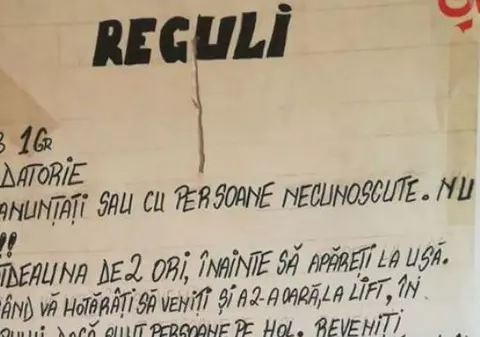 REGULI
3 1GR
DATORIE
ANUNȚAȚI SAU CU PERSOANE NECUNOSCUTE. NU
!!
TDEAUNA DE 2 ORI, ÎNAINTE SĂ APĂREȚI LA UȘĂ.
ÂND VĂ HOTĂRÂȚI SĂ VENIȚI ȘI A 2-A OARĂ, LA LIFT, ÎN
DACĂ SUNT PERSOANE PE HOL. REVENIȚI